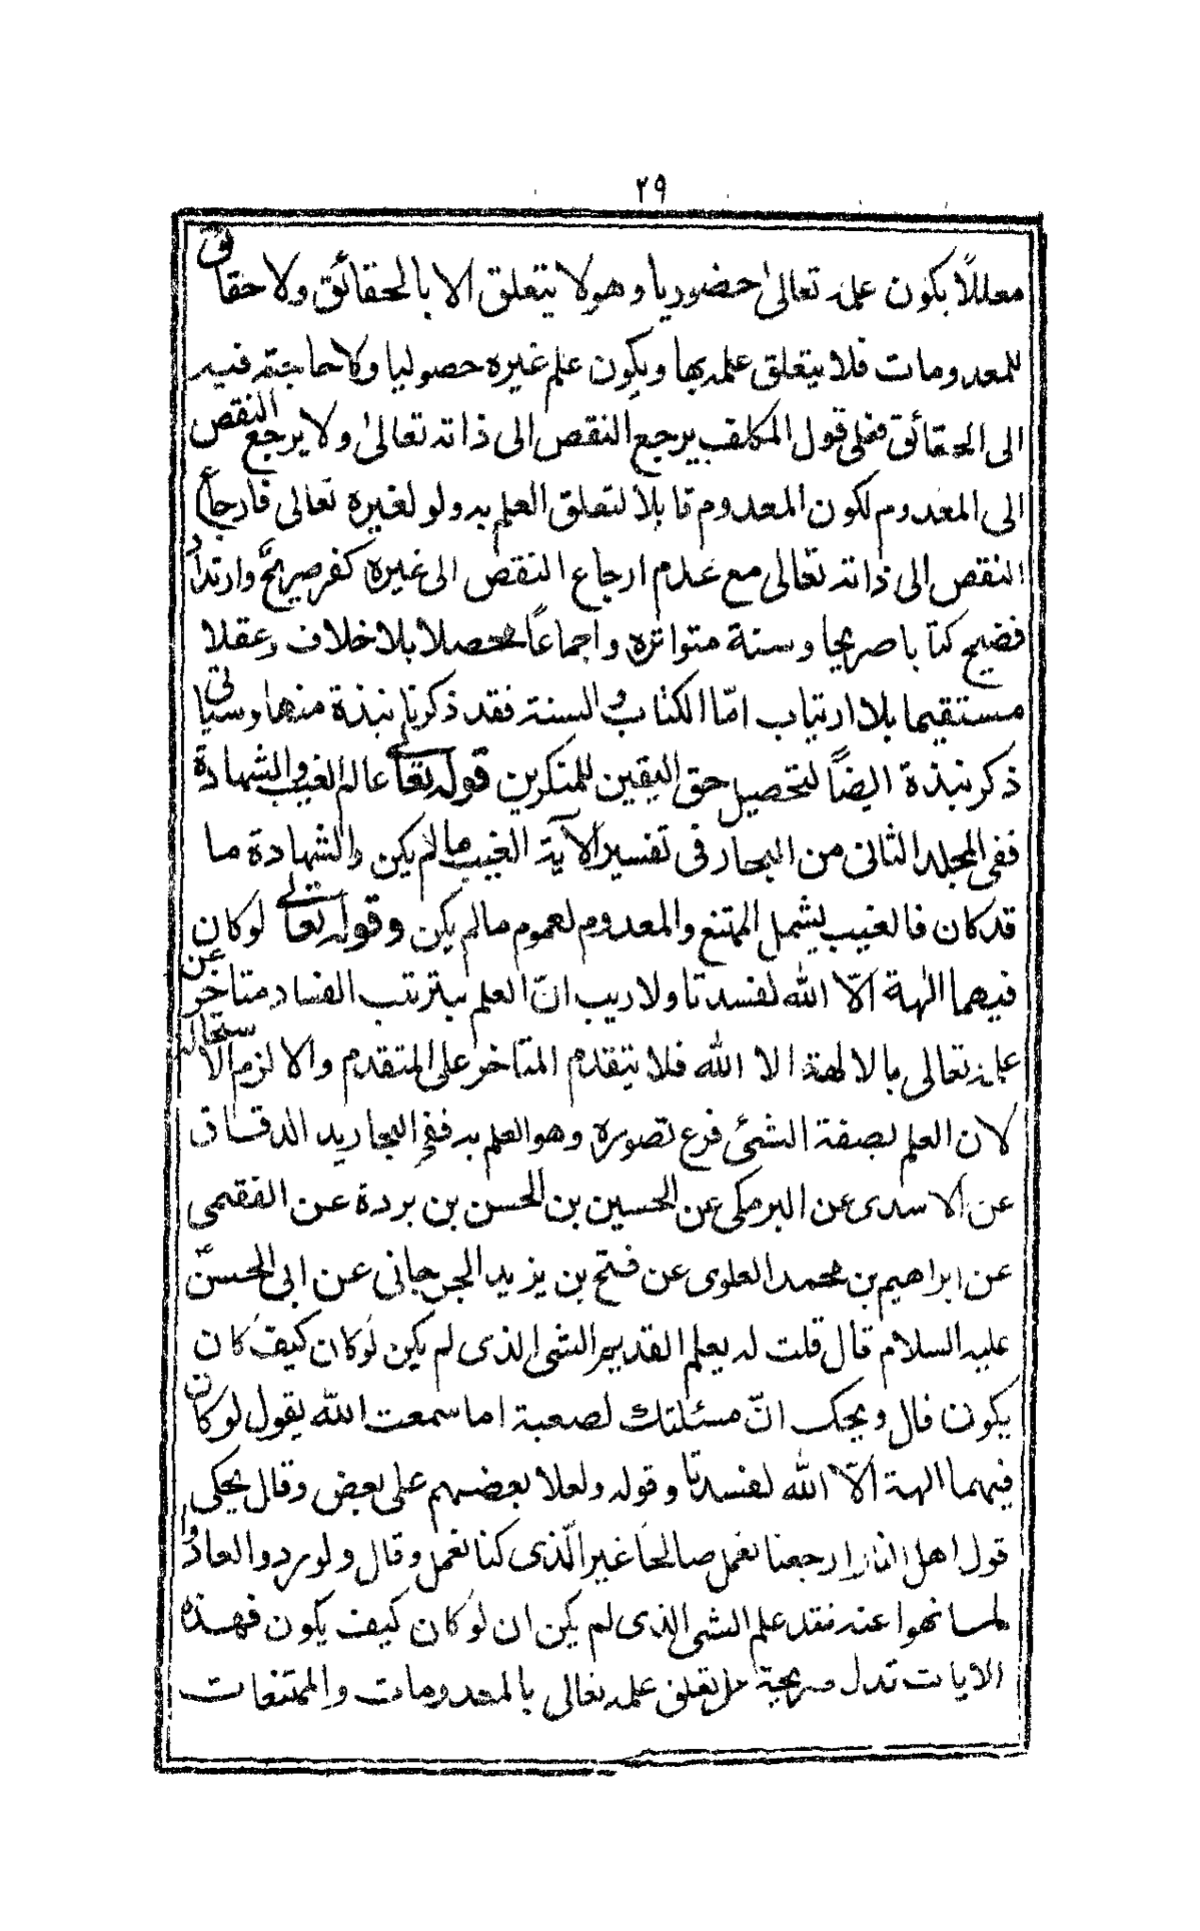 ٢٩
معللاً بكون علمه تعالى حضوريا وهو لا يتعلق الا بالحقائق ولا حقائق
للمعدومات فلا يتعلق علمه بها ويكون علم غيره حصوليا ولا حاجته فيه
الى الحقائق فعلى قول المكلف يرجع النقص الى ذاته تعالى ولا يرجع النقص
الى المعدوم لكون المعدوم قابلا لتعلق العلم به ولو لغيره تعالى فارجاع
النقص الى ذاته تعالى مع عدم ارجاع النقص الى غيره كفر صريح وارتداد
فضيح كتابا صريحا وسنة متواتره واجماعاً محصلا بلا خلاف وعقلا
مستقيما بلا ارتياب امّا الكتاب والسنة فقد ذكرنا نبذة منها وسياتى
ذكر نبذة ايضاً لتحصيل حق اليقين للمنكرين قوله تعالى عالم الغيب والشهادة
ففى المجلد الثانى من البحار فى تفسير الآية الغيب ما لم يكن والشهادة ما
قد كان فالغيب يشمل الممتنع والمعدوم لعموم ما لم يكن وقوله تعالى لو كان
فيهما الهة الّا الله لفسدتا ولا ريب انّ العلم بترتب الفساد متاخر عن
علمه تعالى بالالهة الا الله فلا يتقدم المتاخر على المتقدم والا لزم الاستحالة
لان العلم بصفة الشئ فرع تصوره وهو العلم به ففى البحار يد الدقاق
عن الاسدى عن البرمكى عن الحسين بن الحسن بن بردة عن الفقيمى
عن ابراهيم بن محمد العلوى عن فتح بن يزيد الجرجانى عن ابى الحسن
عليه السلام قال قلت له يعلم القديم الشئ الذى لم يكن لو كان كيف كان
يكون قال ويحك انّ مسئلتك لصعبة اما سمعت الله يقول لو كان
فيهما الهة الّا الله لفسدتا وقوله ولعلا بعضهم على بعض وقال يحكى
قول اهل النار ارجعنا نعمل صالحا غير الّذى كنا نعمل وقال ولو ردوا لعادوا
لما نهوا عنه فقد علم الشئ الذى لم يكن ان لو كان كيف يكون فهذه
الايات تدل صريحة على تعلق علمه تعالى بالمعدومات والممتنعات